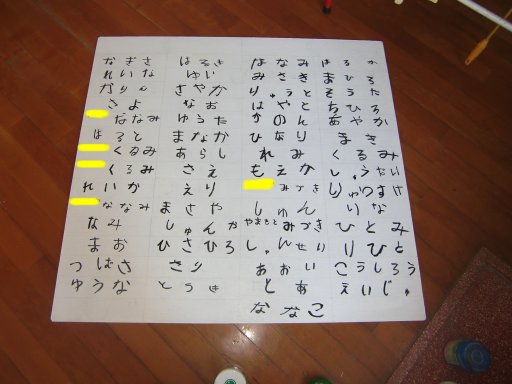 なぎさ はるき はなみ はるか
れいな ゆい みさき まひろ
かりん さやか りゅうと そうた
さよ なお はやと ちひろ
ななみ ゆうた かのん あやか
はると まなか ひなり まき
くるみ あらし れみ くるみ
くるみ さえ もえか しょうたい
れいか えり みずき りゅうのすけ
ななみ まさや しゅん りな
なみ しゅんか やまもとみづき ひとみ
まお ひさひろ しゅんせい りひと
つばさ さり あおい こうしろう
ゆうな とうき とあ えいじゅ
ななこ